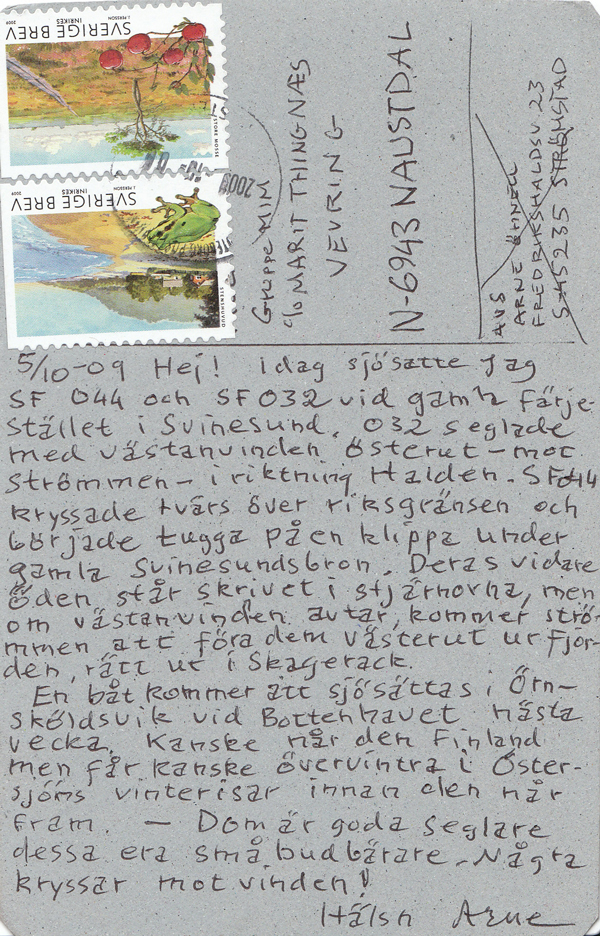 SVERIGE BREV
INRIKES
J. PERSSON
2009
STORE MOSSE
SVERIGE BREV
INRIKES
J. PERSSON
2009
STENSHUVUD
2009
Gruppe MIM
c/o MARIT THINGNÆS
VEVRING
N-6943 NAUSTDAL
AVS
ARNE
FREDRIKSHALDSV 23
S-45235 STRÖMSTAD
5/10-09 Hej! idag sjösatte jag
SF 044 och SF032 vid gamla färje-
stället i Svinesund. 032 seglade
med västanvinden österut - mot
strömmen - i riktning Halden. SF044
kryssade tvärs över riksgränsen och
började tugga på en klippa under
gamla Svinesundsbron. Deras vidare
öden står skrivet i stjärnorna, men
om västanvinden avtar, kommer strö-
mmen att föra dem västerut ur fjor-
den, rätt ut i Skagerack.
En båt kommer att sjösättas i Örn-
sköldsvik vid Bottenhavet nästa
vecka. Kanske når den Finland
men får kanske övervintra i Öster-
sjöns vinterisar innan den når
fram. — Dom är goda seglare
dessa era små budbärare. Några
kryssar mot vinden!
Hälsn Arne